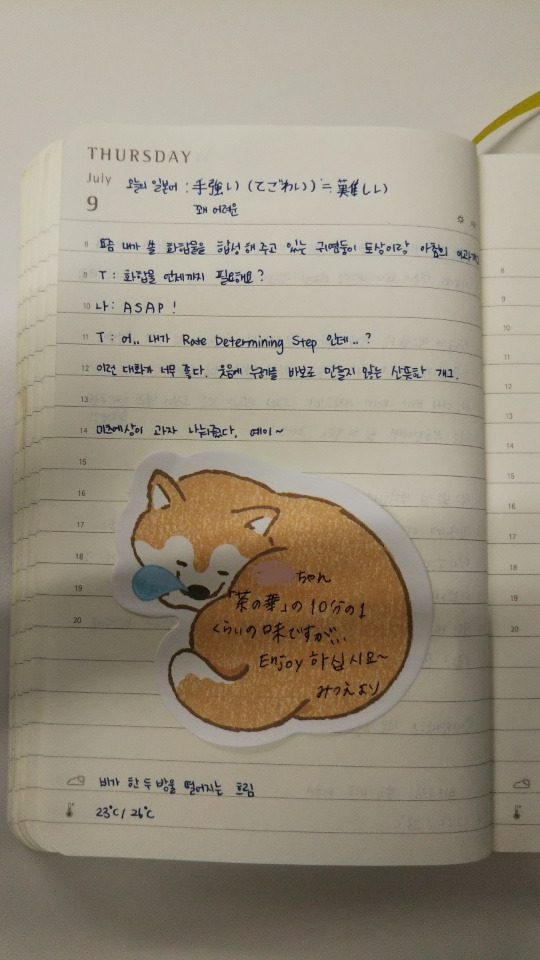 THURSDAY
July
9
오늘의 일본어 : 手強い (てごわい) ≒ 難しい
꽤 어려운
8 요즘 내가 쓸 화합물을 합성해 주고 있는 귀염둥이 토상이랑 아침의
9 T : 화합물 언제까지 필요해요?
10 나 : ASAP !
11 T : 어.. 내가 Rate Determining Step 인데..?
12 이런 대화가 너무 좋다. 웃음에 누군가를 바보로 만들지 않는 산뜻한 개그.
13
14 미츠에상이 과자 나눠줬다. 예이~
15
16
17
18
19
20
ちゃん
「茶の葉」の10分の1
くらいの味ですが…
Enjoy 하십시요~
みつえより
비가 한두방울 떨어지는 흐림
23°C / 26°C
8
9
10
11
12
13
14
15
16
17
18
19
20